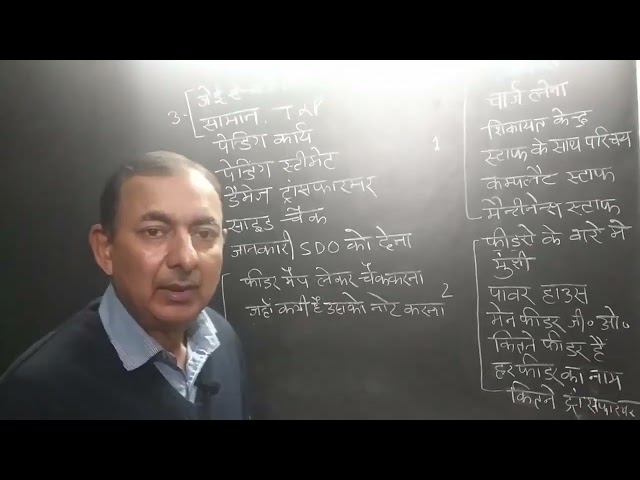 चार्ज लेना
शिकायत केन्द्र
1 स्टाफ के साथ परिचय
कम्पलैंट स्टाफ
मैन्टीनेन्स स्टाफ
फीडरो के बारे मे
मुंशी
पावर हाउस
मेन फीडर जी॰ ओ॰
कितने फीडर है
हर फीडर का नाम
कितने ट्रांसफारमर
फीडर मैप लेकर चैक करना
जहाँ कमी है उसको नोट करना 2
3- जेई से
सामान. T&P
पेंडिंग कार्य
पेंडिंग स्टीमेट
डैमेज ट्रांसफारमर
साइड चैक
जानकारी SDO को देना